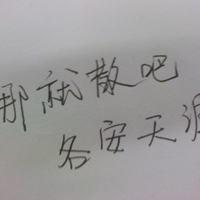 那就散吧
各安天涯